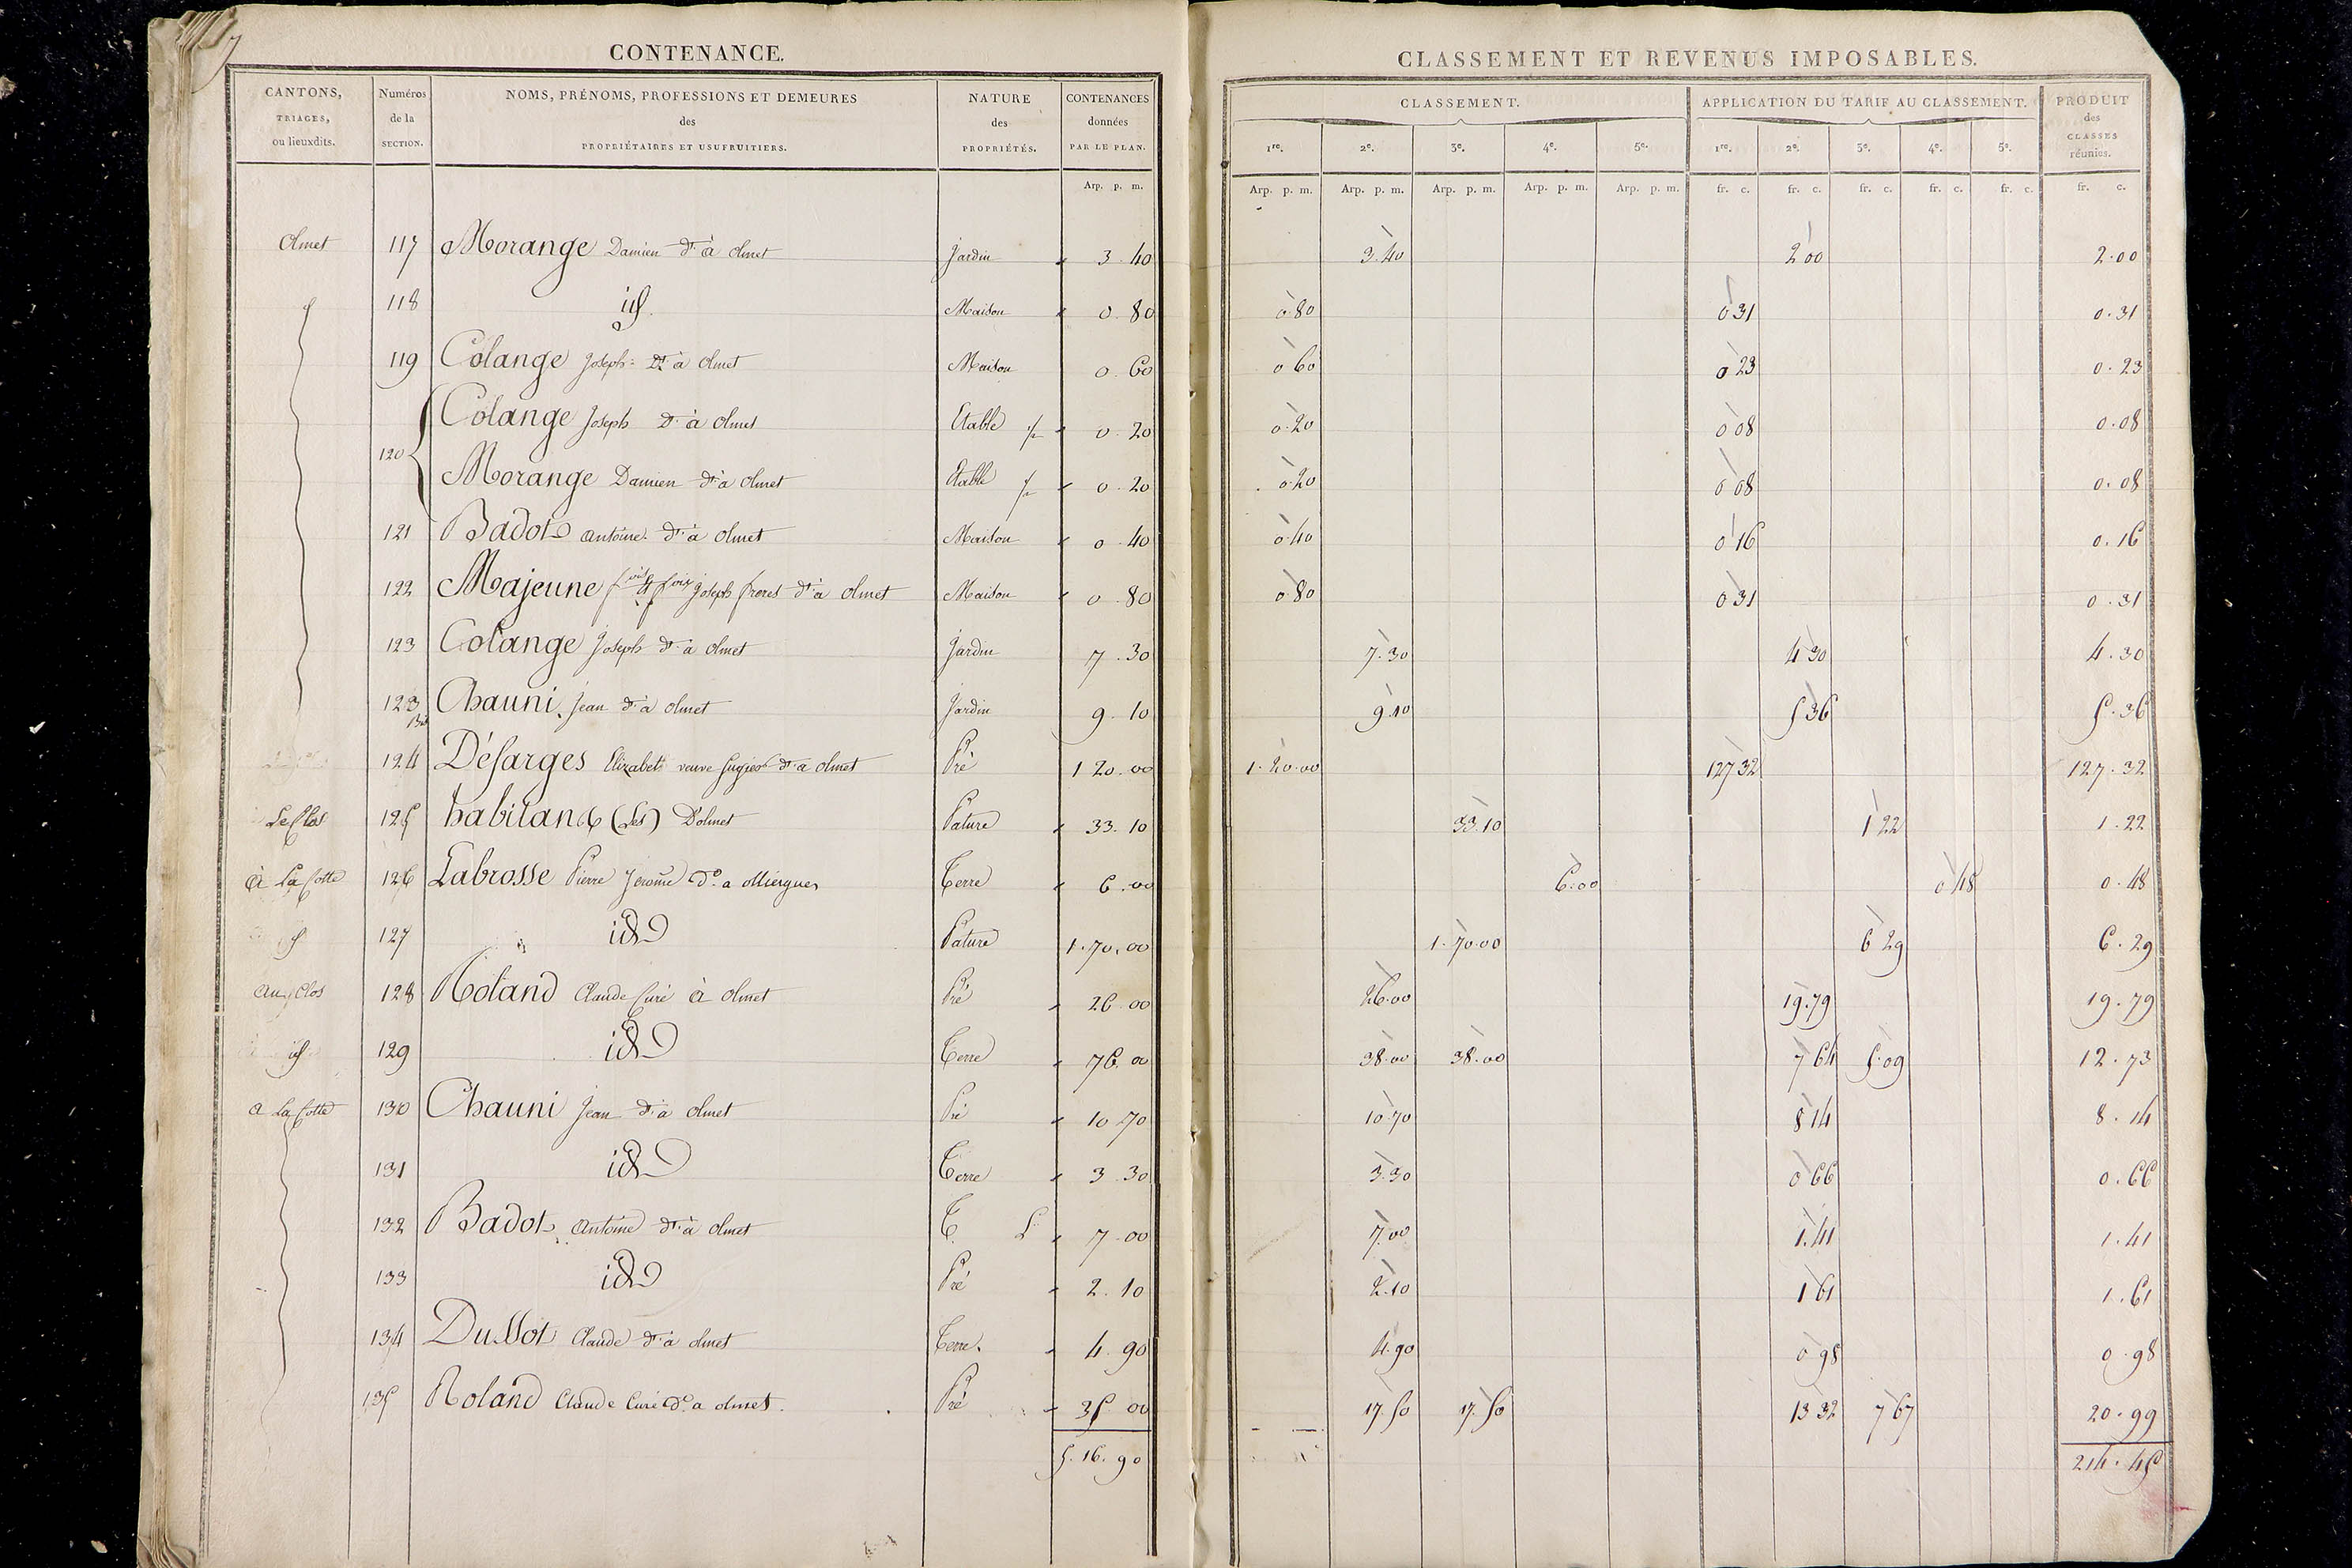 7
CONTENANCE.
CANTONS, TRIAGES, ou lieuxdits.
Numéros de la SECTION.
NOMS, PRÉNOMS, PROFESSIONS ET DEMEURES des PROPRIÉTAIRES ET USUFRUITIERS.
NATURE des PROPRIÉTÉS.
CONTENANCES données PAR LE PLAN.
Arp. p. m.
CLASSEMENT ET REVENUS IMPOSABLES.
CLASSEMENT.
APPLICATION DU TARIF AU CLASSEMENT.
PRODUIT des CLASSES réunies.
1re. 2e. 3e. 4e. 5e. 1re. 2e. 3e. 4e. 5e.
Arp. p. m. Arp. p. m. Arp. p. m. Arp. p. m. Arp. p. m. fr. c. fr. c. fr. c. fr. c. fr. c. fr. c.
Olmet 117 Morange Damien d.t à Olmet Jardin 3.40 3.40 2 00 2.00
118 id. Maison 0.80 0.80 0 31 0.31
119 Colange Joseph D.t à Olmet Maison 0.60 0 60 0 23 0.23
120 Colange Joseph D.t à Olmet Etable 0.20 0.20 0 08 0.08
Morange Damien d.t à Olmet Etable 0.20 0.20 0 08 0.08
121 Badot Antoine d.t à Olmet Maison 0.40 0.40 0 16 0.16
122 Majeune Joseph freres d.t à Olmet Maison 0.80 0.80 0 31 0.31
123 Colange Joseph d.t à Olmet Jardin 7.30 7.30 4 30 4.30
123 Bis Chauni Jean d.t à Olmet Jardin 9.10 9.10 5 36 5.36
124 Désarges Elizabeth veuve d.t à Olmet Pré 1 20.00 1.20.00 127 32 127.32
Le Clos 125 habitants (Les) D'olmet Pature 33.10 33.10 1 22 1.22
à La Cotte 126 Labrosse Pierre Jerome d.t a Olliergues Terre 6.00 6.00 0 48 0.48
id 127 id Pature 1.70.00 1.70.00 6 29 6.29
au Clos 128 Roland Claude Curé à Olmet Pré 26.00 26.00 19.79 19.79
id 129 id Terre 76.00 38.00 38.00 7 64 5.09 12.73
a La Cotte 130 Chauni Jean d.t à Olmet Pré 10 70 10.70 8 14 8.14
131 id Terre 3.30 3.30 0 66 0.66
132 Badot Antoine d.t à Olmet T. 7.00 7.00 1.41 1.41
133 id Pré 2.10 2.10 1 61 1.61
134 Dussot Claude d.t à Olmet Terre. 4.90 4.90 0 98 0.98
135 Roland Claude Curé d.t a Olmet. Pré 35 00 17.50 17.50 13 32 7 67 20.99
5.16.90 214.45